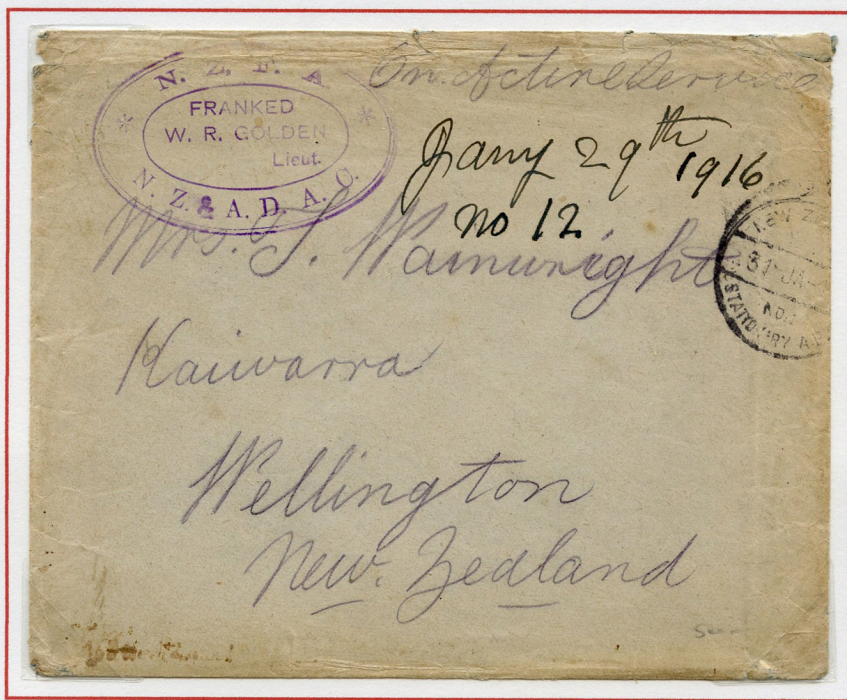 N. Z. F. A.
FRANKED
W. R. GOLDEN
Lieut.
N. Z. & A. D. A. C.
On Active Service
Jany 29th 1916
no 12
NEW Z
31 JA
STATIONARY
Mrs. T. Wainwright
Kaiwarra
Wellington
New. Zealand